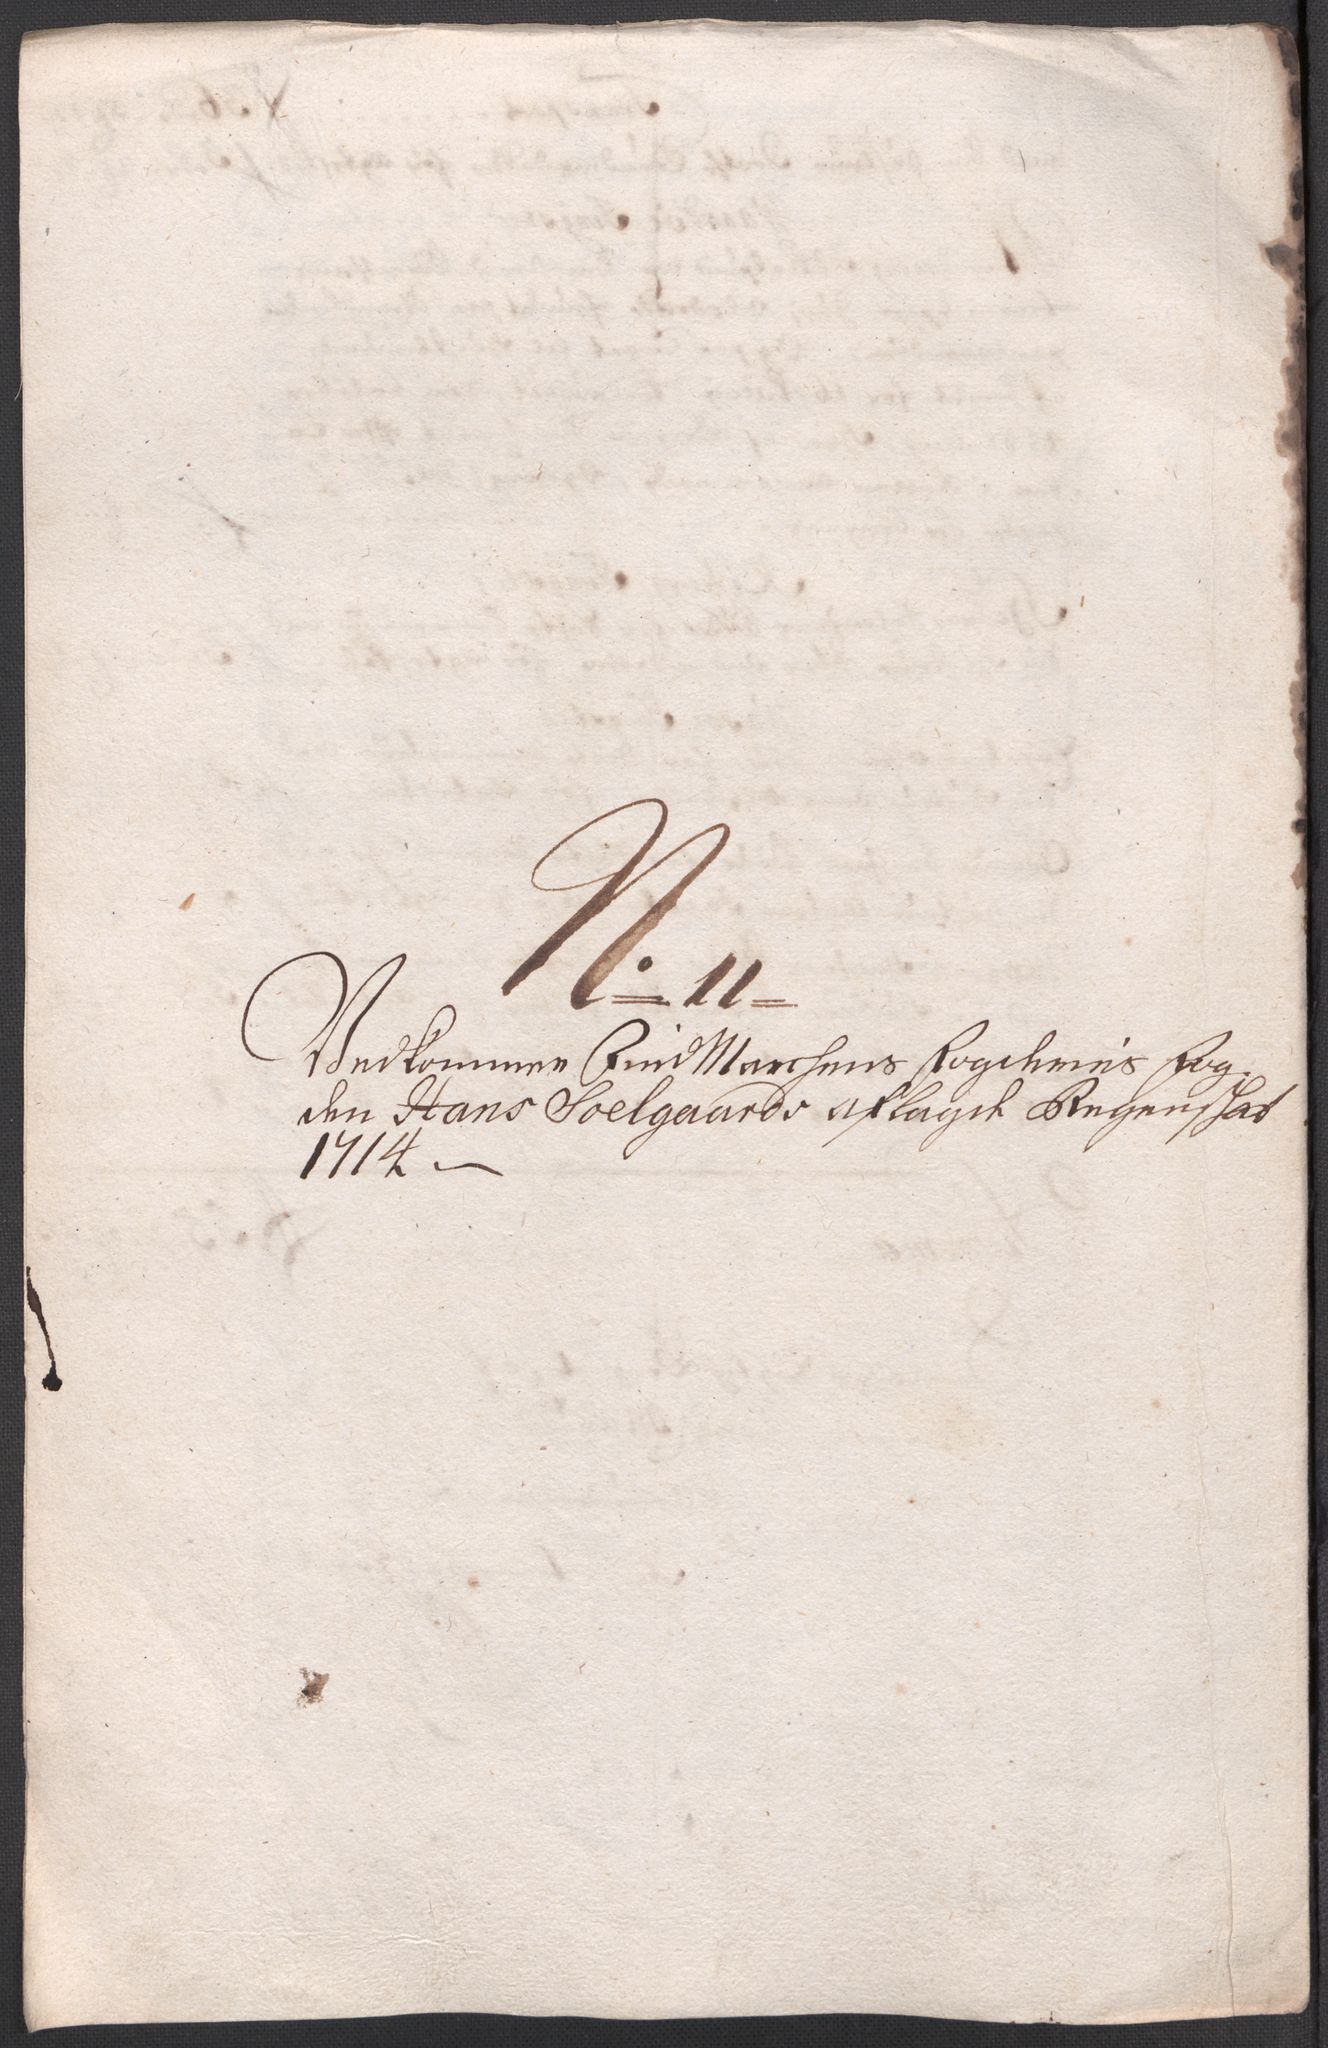 N. 11
Vedkommer FindMarchens Fogderies Fog,
den Hans Soelgaards aflagde Regenskab
1714